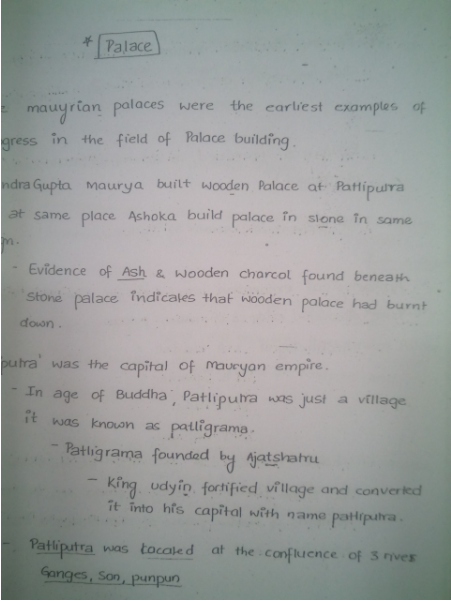 * Palace
mauyrian palaces were the earliest examples of
gress in the field of Palace building.
ndra Gupta Maurya built wooden Palace at Patliputra
at same place Ashoka build palace in stone in same
m.
- Evidence of Ash & wooden charcol found beneath
stone palace indicates that wooden palace had burnt
down.
putra' was the capital of Mauryan empire.
- In age of Buddha, Patliputra was just a village
it was known as patligrama.
- Patligrama founded by Ajatshatru
- King udyin fortified village and converted
it into his capital with name patliputra.
- Patliputra was Localed at the confluence of 3 rives
Ganges, Son, punpun